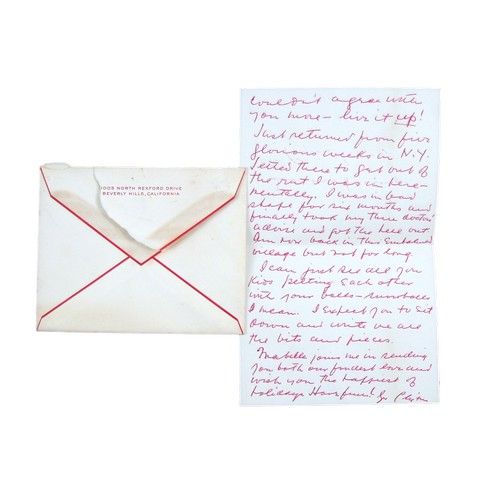 1003 NORTH REXFORD DRIVE
BEVERLY HILLS, CALIFORNIA
couldn't agree with
you more - live it up!
Just returned from five
glorious weeks in N.Y.
Jetted there to get out of
the rut I was in here -
mentally. I was in bad
shape for six months and
finally took my three doctors'
advice and got the hell out.
Am now back in this
village but not for long.
I can just see all you
kids pelting each other
with your balls - snowballs
I mean. I expect you to sit
down and write me all
the bits and pieces.
Mabelle joins me in sending
you both our fondest love and
wish you the happiest of
holidays. Have fun!